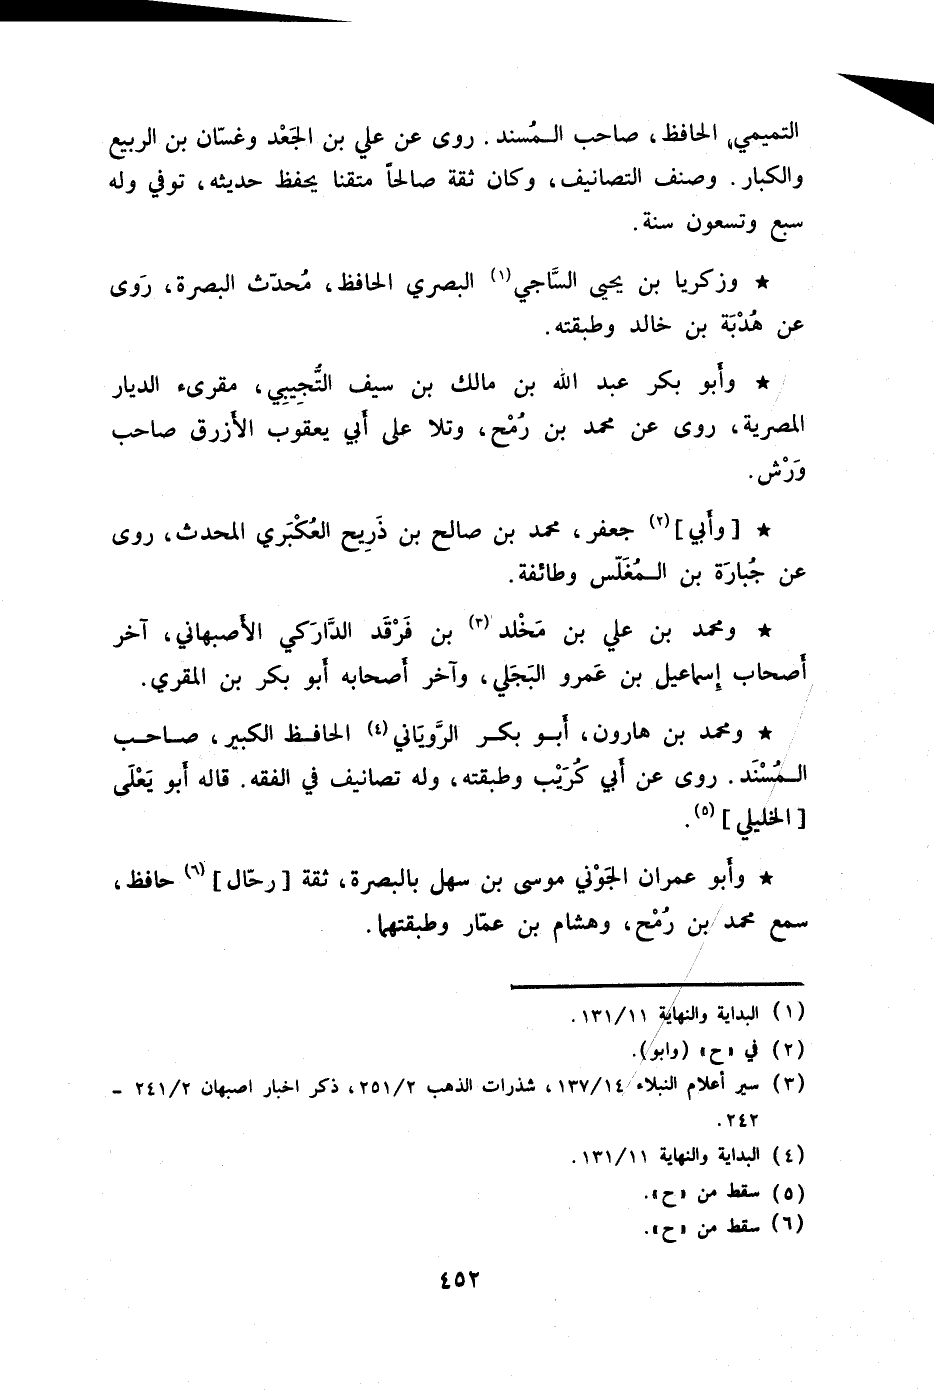 التميمي، الحافظ، صاحب المُسند. روى عن علي بن الجَعْد وغسّان بن الربيع
والكبار. وصنف التصانيف، وكان ثقة صالحاً متقنا يحفظ حديثه، توفي وله
سبع وتسعون سنة.
★ وزكريا بن يحيى السَّاجي(١) البصري الحافظ، مُحدّث البصرة، رَوى
عن هُدْبَة بن خالد وطبقته.
★ وأَبو بكر عبد الله بن مالك بن سيف التُّجِيبِي، مقرىء الديار
المصرية، روى عن محمد بن رُمْح، وتلا على أَبي يعقوب الأَزرق صاحب
وَرْش.
★ [وأَبي](٢) جعفر، محمد بن صالح بن ذَرِيح العُكْبَري المحدث، روى
عن جُبارَة بن المُغَلّس وطائفة.
★ ومحمد بن علي بن مَخْلد(٣) بن فَرْقَد الدَّارَكي الأَصبهاني، آخر
أَصحاب إِسماعيل بن عَمرو البَجَلي، وآخر أَصحابه أَبو بكر بن المقري.
★ ومحمد بن هارون، أَبو بكر الرَّويَاني(٤) الحافظ الكبير، صاحب
المُسْنَد. روى عن أَبي كُرَيْب وطبقته، وله تصانيف في الفقه. قاله أَبو يَعْلَى
[الخليلي](٥).
★ وأَبو عمران الجَوْني موسى بن سهل بالبصرة، ثقة [رحّال](٦) حافظ،
سمع محمد بن رُمْح، وهشام بن عمّار وطبقتهما.
(١) البداية والنهاية ١٣١/١١.
(٢) في «ح» (وابو).
(٣) سير أعلام النبلاء ١٣٧/١٤، شذرات الذهب ٢٥١/٢، ذكر اخبار اصبهان ٢٤١/٢ -
٢٤٢.
(٤) البداية والنهاية ١٣١/١١.
(٥) سقط من «ح».
(٦) سقط من «ح».
٤٥٢